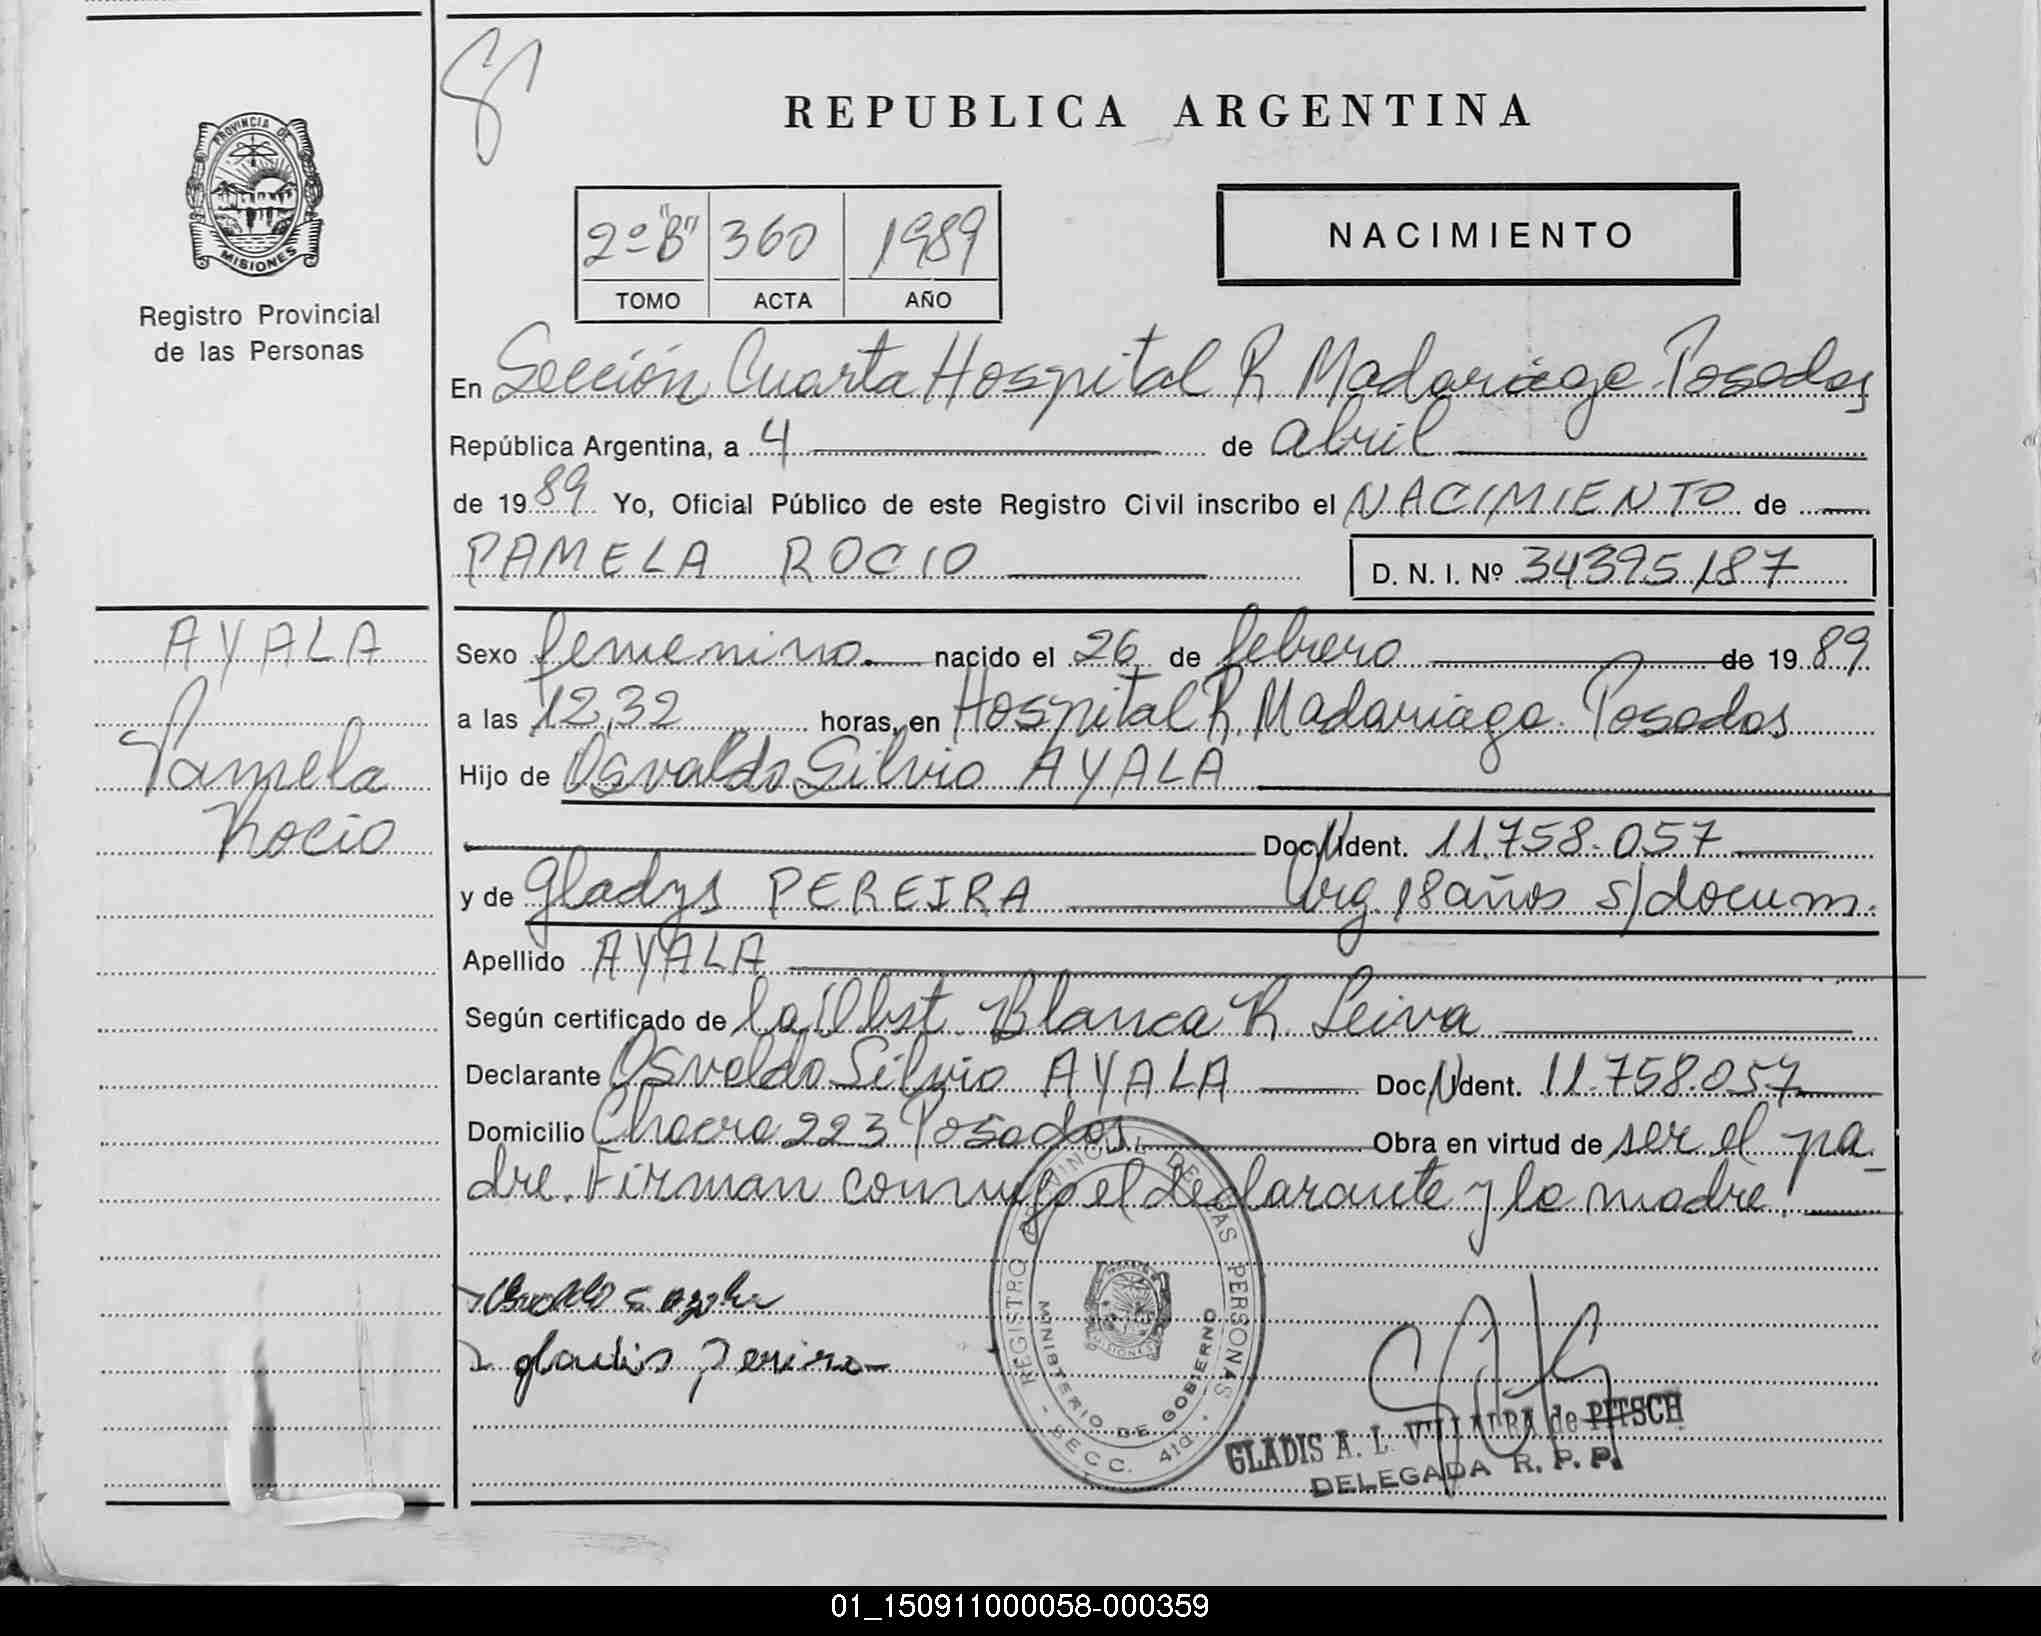 PROVINCIA DE
MISIONES
Registro Provincial
de las Personas
REPUBLICA ARGENTINA
2º "B" 360 1989
TOMO ACTA AÑO
NACIMIENTO
En Sección Cuarta Hospital R Madariaga. Posadas
República Argentina, a 4 de abril
de 1989 Yo, Oficial Público de este Registro Civil inscribo el NACIMIENTO de
PAMELA ROCIO
D. N. I. Nº 34395187
AYALA
Pamela
Rocio
Sexo femenino. nacido el 26 de febrero de 1989
a las 12,32 horas, en Hospital R. Madariaga. Posadas
Hijo de Osvaldo Silvio AYALA
Doc. Ident. 11.758.057
y de Gladys PEREIRA Arg. 18 años s/docum.
Apellido AYALA
Según certificado de la Obst. Blanca R. Leiva
Declarante Osvaldo Silvio AYALA Doc. Ident. 11.758.057
Domicilio Chacra 223 Posadas Obra en virtud de ser el pa-
dre. Firman conmigo el declarante y la madre.
gladis Pereira
REGISTRO PROVINCIAL DE LAS PERSONAS
MINISTERIO DE GOBIERNO
- SECC. 4ta. -
GLADIS A. L. VILLALBA de PITSCH
DELEGADA R. P. P.
01_150911000058-000359